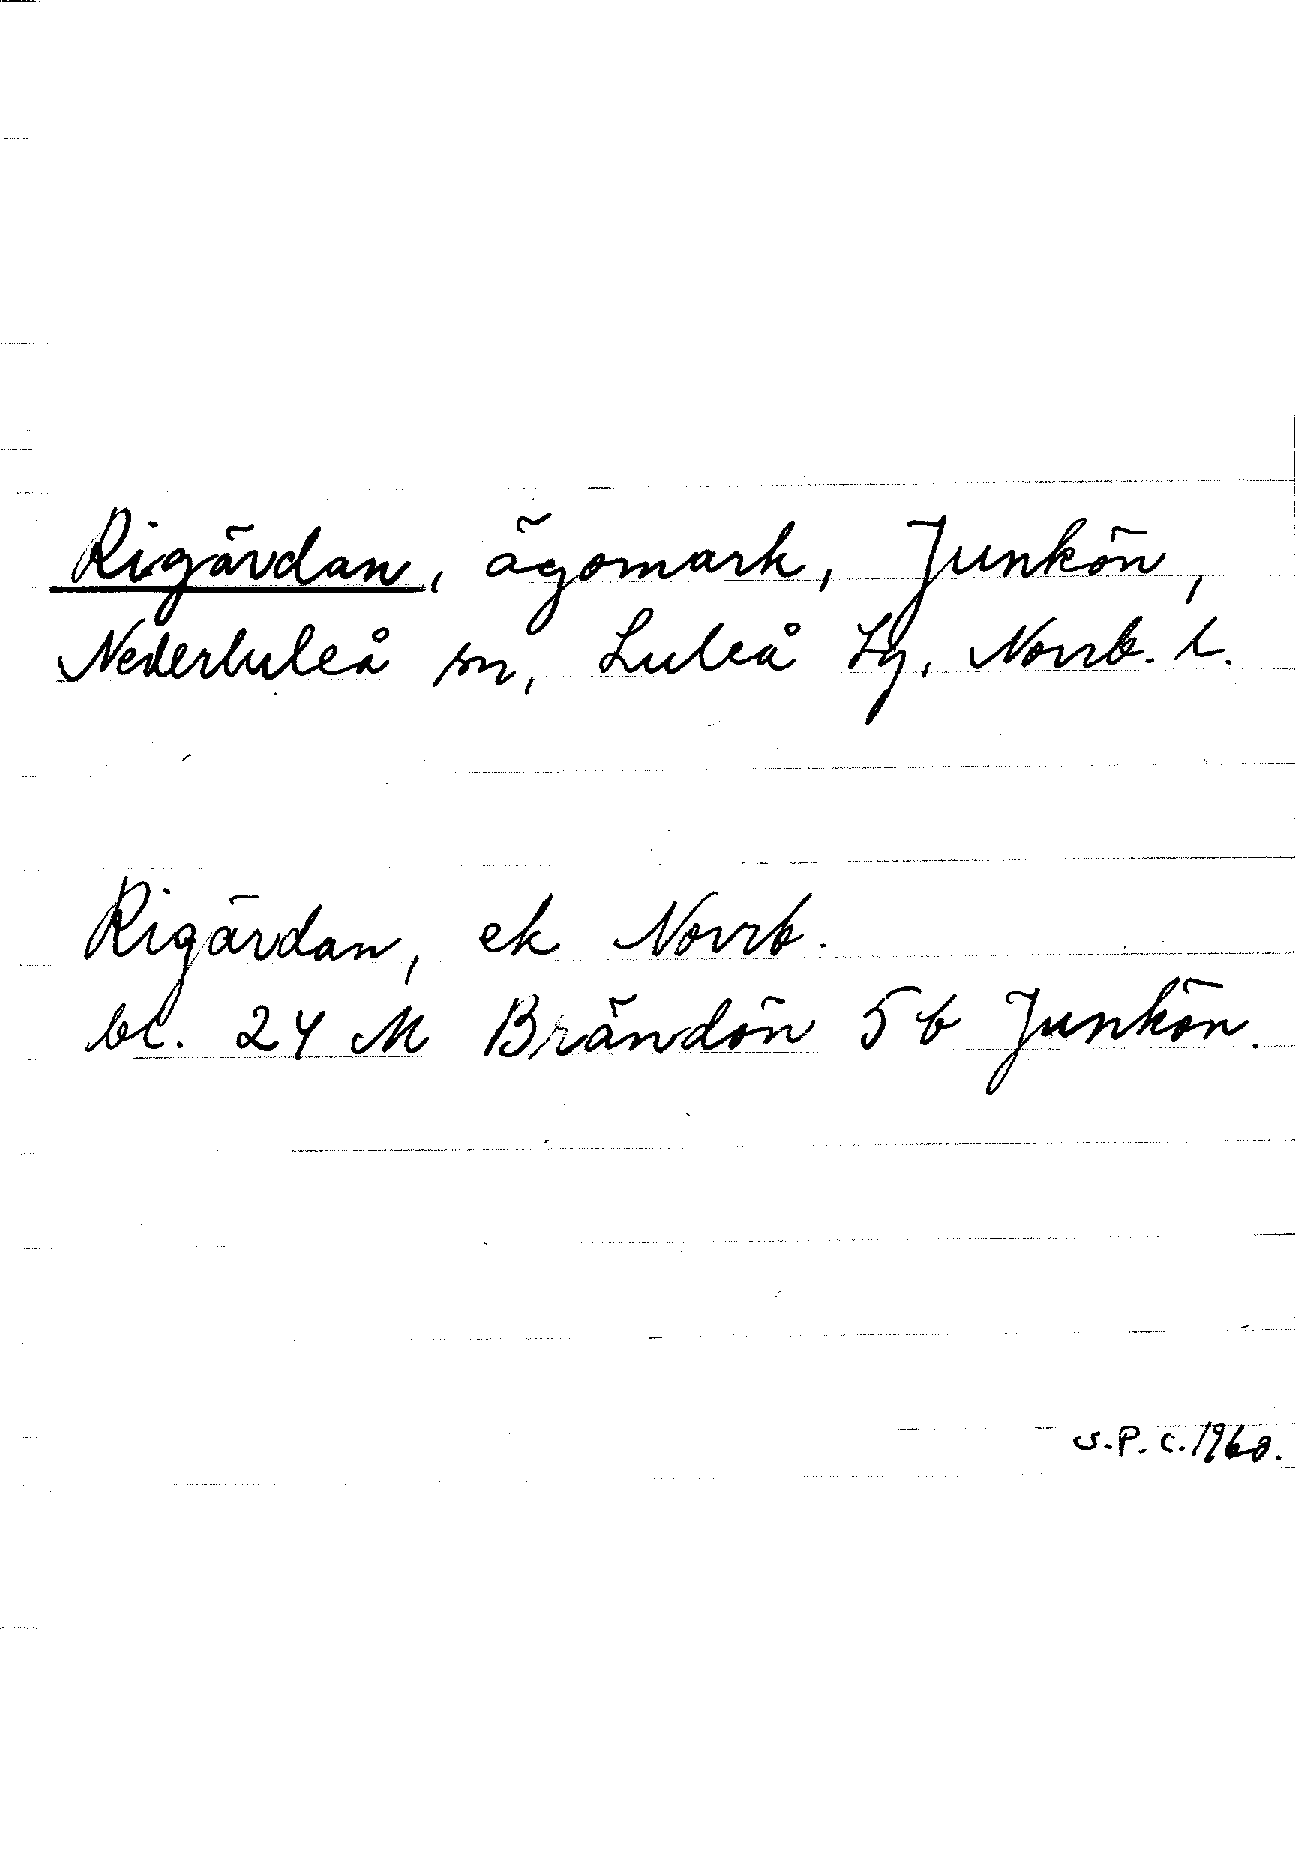 Rigärdan, ägomark, Junkön,
Nederluleå sn, Luleå tg, Norrb. l.
Rigärdan, ek Norrb.
bl. 24 M Brändön 5 b Junkön.
S.P.C. 1960.